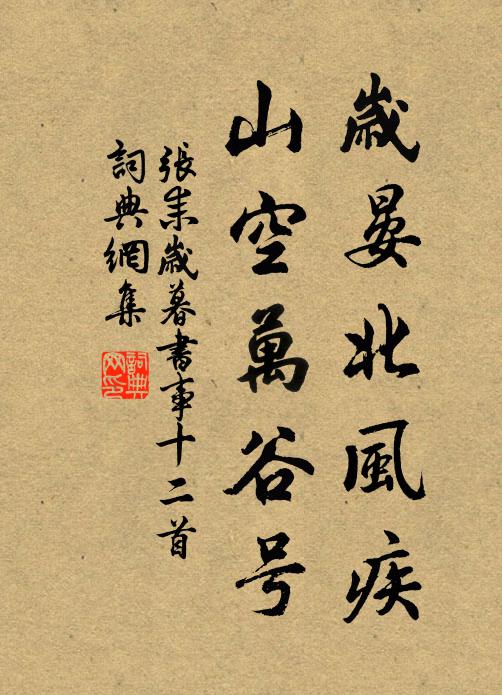 歲晏北風疾
山空萬谷号
張耒歲暮書事十二首
詞典網集
詞典
网印